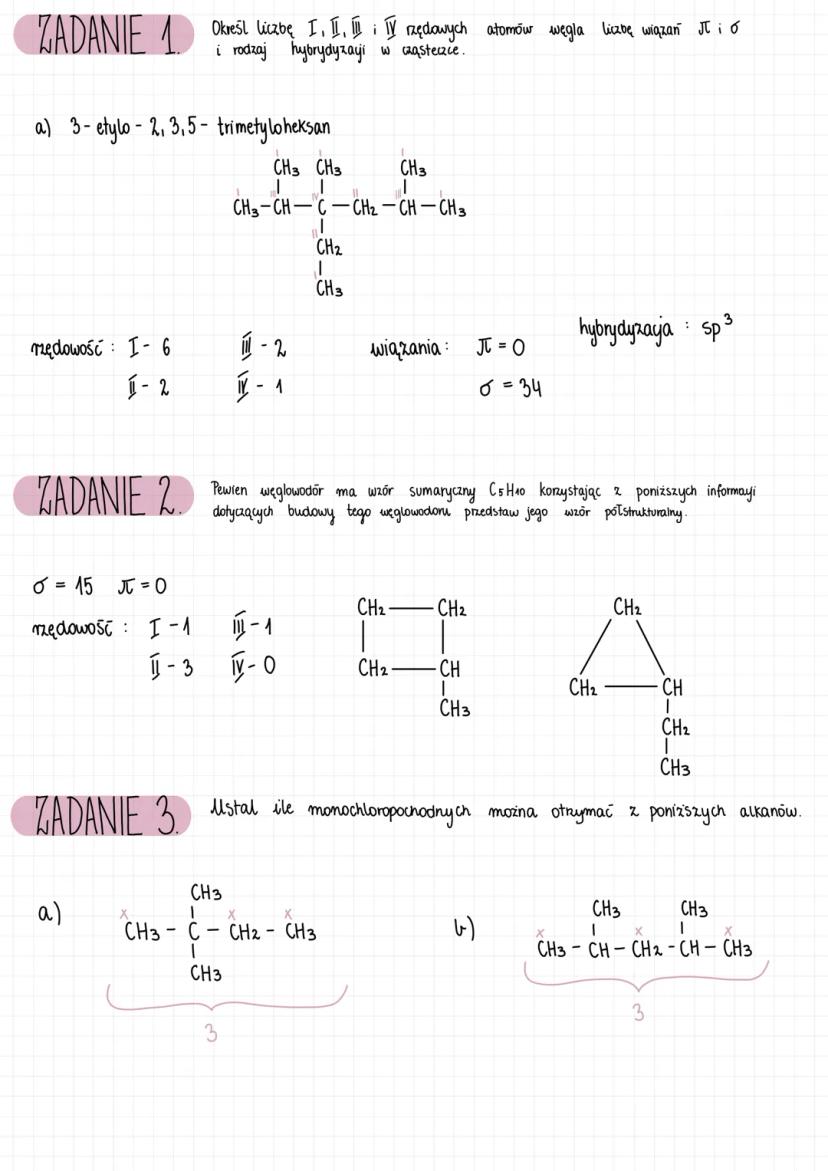 ZADANIE 1. Określ liczbę I, II, III i IV rzędowych atomów węgla liczbę wiązań π i σ
i rodzaj hybrydyzacji w cząsteczce.
a) 3-etylo-2,3,5-trimetyloheksan
I I I
CH3 CH3 CH3
I III IV II III I
CH3-CH-C-CH2-CH-CH3
II
CH2
I
CH3
hybrydyzacja : sp³
rzędowość : I - 6 III - 2 wiązania : π = 0
II - 2 IV - 1 σ = 34
ZADANIE 2. Pewien węglowodór ma wzór sumaryczny C5H10 korzystając z poniższych informacji
dotyczących budowy tego węglowodoru przedstaw jego wzór półstrukturalny.
σ = 15 π = 0
rzędowość : I - 1 III - 1
II - 3 IV - 0
CH2 CH2
CH2 CH
CH3
CH2
CH2 CH
CH2
CH3
ZADANIE 3. Ustal ile monochloropochodnych można otrzymać z poniższych alkanów.
a)
CH3
x x x
CH3 - C - CH2 - CH3
CH3
3
b)
CH3 CH3
x x x
CH3 - CH - CH2 - CH - CH3
3